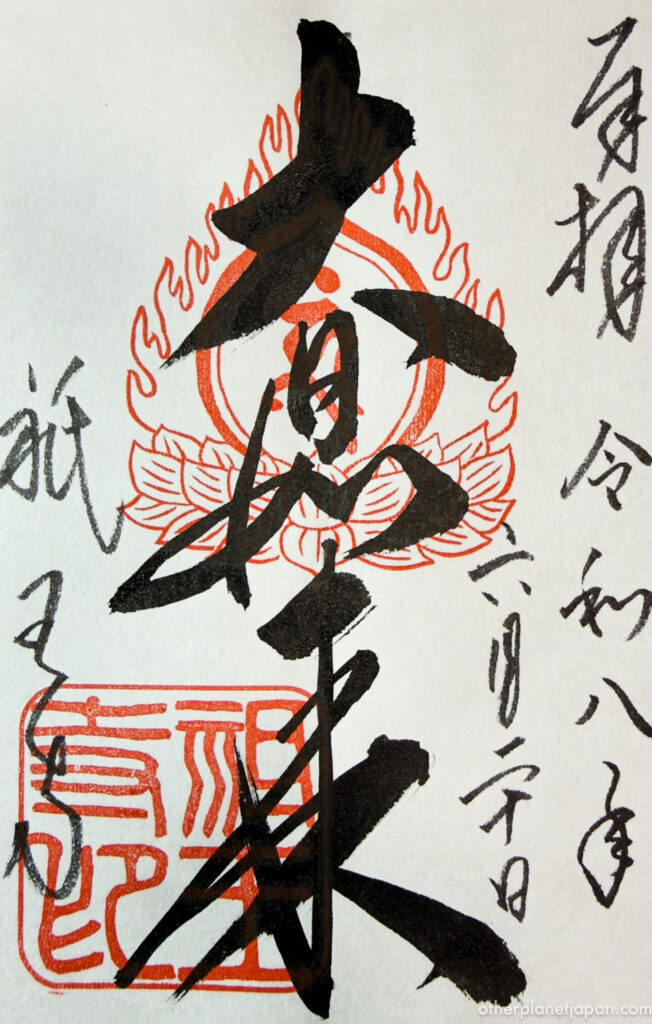 奉拝 令和八年
六月二十日
大日如来
祇王寺
祇王寺印
otherplanetjapan.com